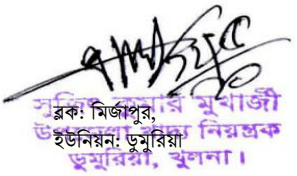 সুজিত কুমার মুখার্জী
ব্লক: মির্জাপুর,
উপজেলা খাদ্য নিয়ন্ত্রক
ইউনিয়ন: ডুমুরিয়া
ডুমুরিয়া, খুলনা।